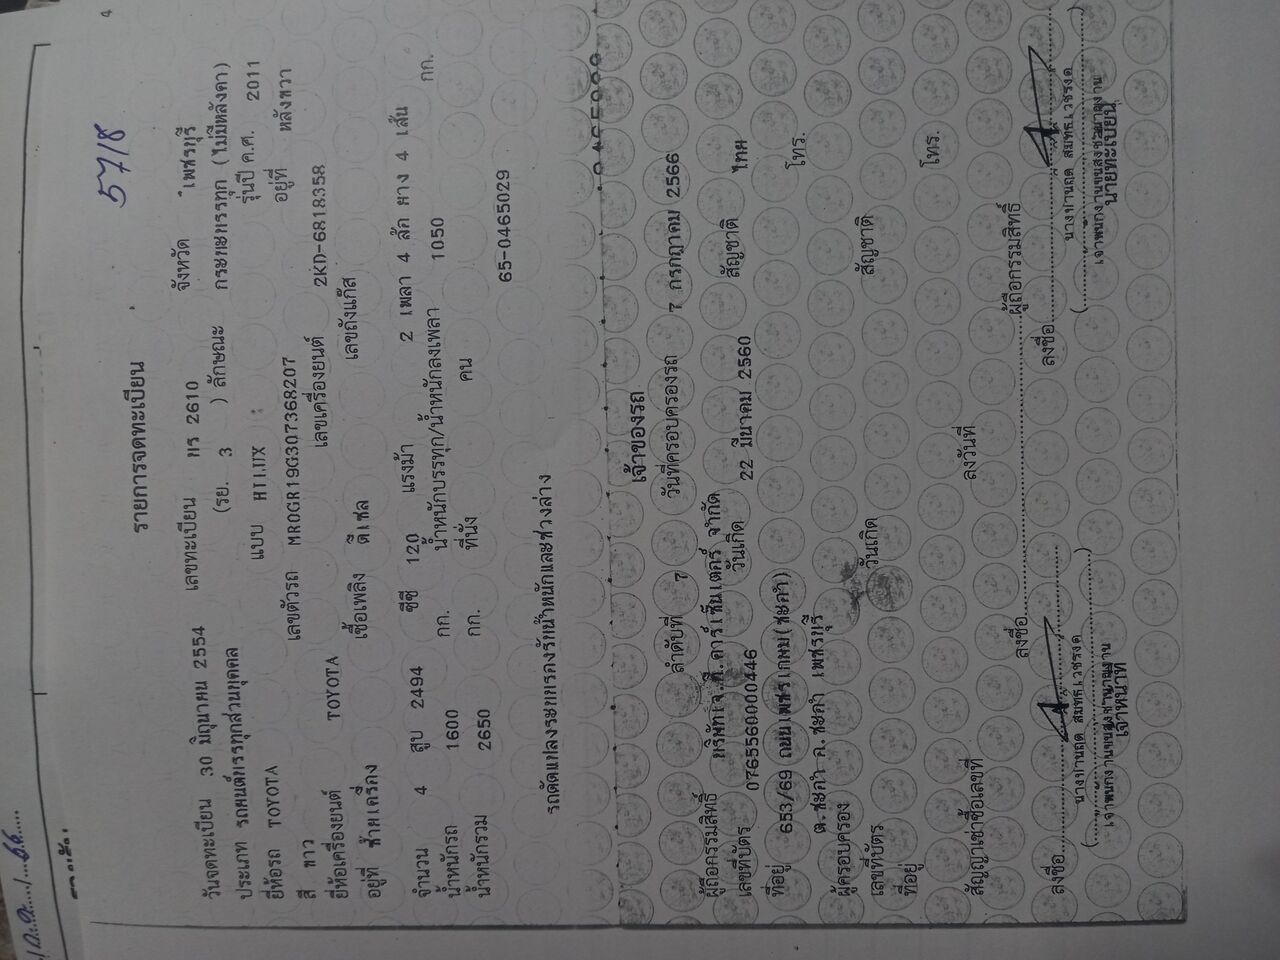 4
5718
รายการจดทะเบียน
วันจดทะเบียน 30 มิถุนายน 2554 เลขทะเบียน 2610 จังหวัด เพชรบุรี
ประเภท รถยนต์บรรทุกส่วนบุคคล (รย. 3 ) ลักษณะ กระบะบรรทุก (ไม่มีหลังคา)
ยี่ห้อรถ TOYOTA แบบ HILUX รุ่นปี ค.ศ. 2011
สี ขาว เลขตัวรถ MR0GR19G307368207 อยู่ที่ หลังขวา
ยี่ห้อเครื่องยนต์ TOYOTA เลขเครื่องยนต์ 2KD-6818358
อยู่ที่ ซ้ายเครื่อง เชื้อเพลิง ดีเซล เลขถังแก๊ส
จำนวน 4 สูบ 2494 ซีซี 120 แรงม้า 2 เพลา 4 ล้อ ยาง 4 เส้น
น้ำหนักรถ 1600 กก. น้ำหนักบรรทุก/น้ำหนักลงเพลา 1050 กก.
น้ำหนักรวม 2650 กก. ที่นั่ง คน
65-0465029
รถดัดแปลงระบบรองรับน้ำหนักและช่วงล่าง
เจ้าของรถ
ลำดับที่ 7 วันที่ครอบครองรถ 7 กรกฎาคม 2566
ผู้ถือกรรมสิทธิ์
เลขที่บัตร 0765560000446 วันเกิด 22 มีนาคม 2560 สัญชาติ ไทย
ที่อยู่ 653/69 ถนนเพชรเกษม(ชะอำ) โทร.
ต.ชะอำ อ.ชะอำ เพชรบุรี
ผู้ครอบครอง
เลขที่บัตร วันเกิด สัญชาติ
ที่อยู่ โทร.
สัญญาเช่าซื้อเลขที่ ลงวันที่
ลงชื่อ ผู้ถือกรรมสิทธิ์
ลงชื่อ ลงชื่อ
เจ้าหน้าที่ นายทะเบียน